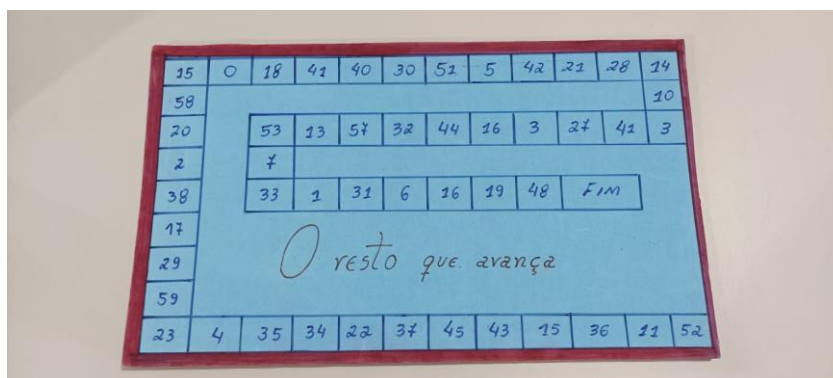 15 0 18 41 40 30 51 5 42 21 28 14
58 10
20 53 13 57 32 44 16 3 27 41 3
2 7
38 33 1 31 6 16 19 48 FIM
17
29 O resto que avança
59
23 4 35 34 22 37 45 43 15 36 11 52